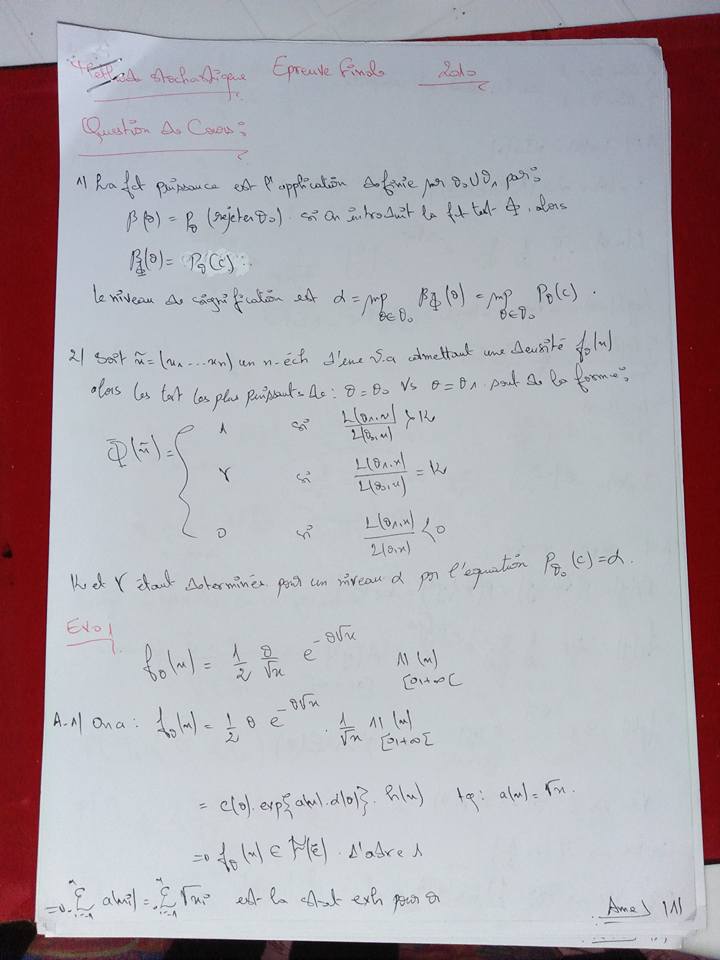 stochastique Epreuve Finale 2010
Question de Cours :
1) La fct puissance est l'application définie sur Θ₀∪Θ₁ par :
β(θ) = P_θ (rejeter Θ₀). si On introduit la fct test Φ, alors
β_Φ(θ) = P_θ(c).
le niveau de signification est α = sup_{θ∈Θ₀} β_Φ(θ) = sup_{θ∈Θ₀} P_θ(c).
2) Soit x̃ = (x₁ ... xn) un n-éch d'une v.a admettant une densité f_θ(x)
alors les test les plus puissants de : θ=θ₀ vs θ=θ₁ sont de la forme :
Φ(x̃) = { 1 si L(θ₁,x)/L(θ₀,x) > K
γ si L(θ₁,x)/L(θ₀,x) = K
0 si L(θ₁,x)/L(θ₀,x) < 0
K et γ étant determinée pour un niveau α par l'equation P_θ₀(c)=α.
Exo 1
f_θ(x) = 1/2 θ/√x e^{-θ√x} 11(x) [0,+∞[
A-1) On a : f_θ(x) = 1/2 θ e^{-θ√x} . 1/√x 11(x) [0,+∞[
= C(θ).exp{a(x).α(θ)}. h(x) tq : a(x) = √x.
=> f_θ(x) ∈ F(ε). d'odre 1
=> Σ_{i=1}^n a(xi) = Σ_{i=1}^n √xi est la stat exh pour θ
Ame) |1|